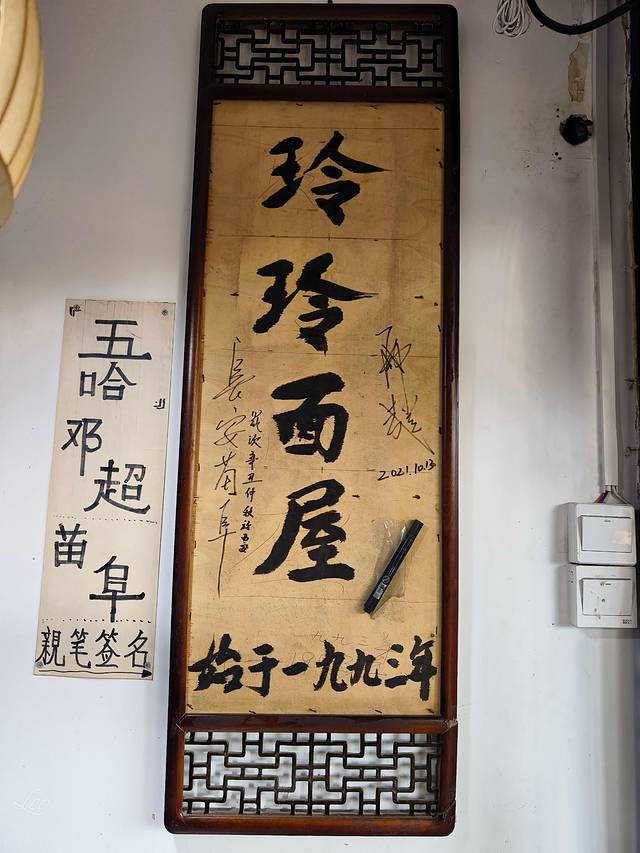 玲玲面屋
始于一九九三年
長安苗阜
2021.10.13
五哈
邓超
苗阜
親笔签名